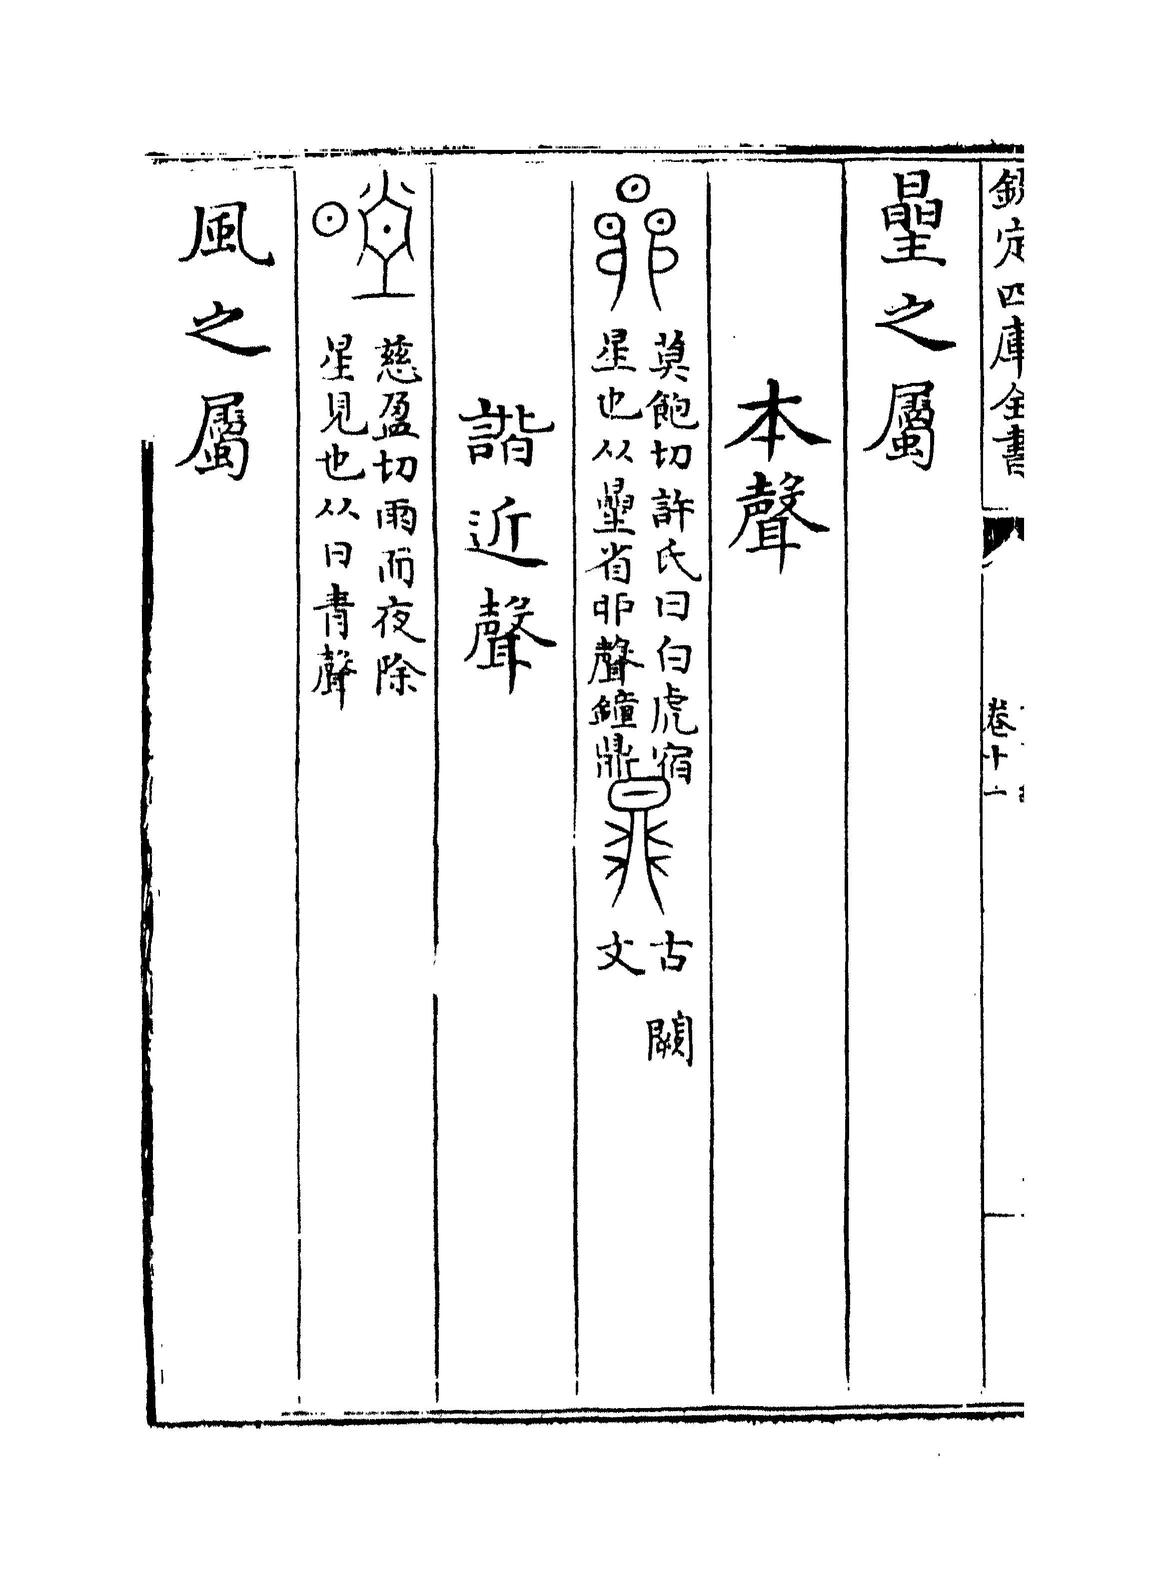 欽定四庫全書
卷十一
曐之屬
本聲
莫飽切許氏曰白虎宿
星也从曐省戼聲鐘鼎
古
文
闕
諧近聲
慈盈切雨而夜除
星見也从日青聲
風之屬